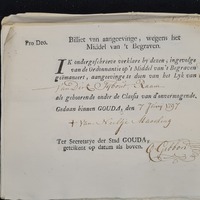 Pro Deo.
Billet van aangeevinge, wegens het
Middel van 't Begraven.
IK ondergeschreeve verklare by deezen, ingevolge
van de Ordonnantie op 't Middel van 't Begraven
geëmaneert, aangeevinge te doen van het Lyk van
van
als gehoorende onder de Classis van d'onvermogende,
Gedaan binnen GOUDA, den 7 1797
Ter Secretarye der Stad GOUDA,
getekent op datum als boven.